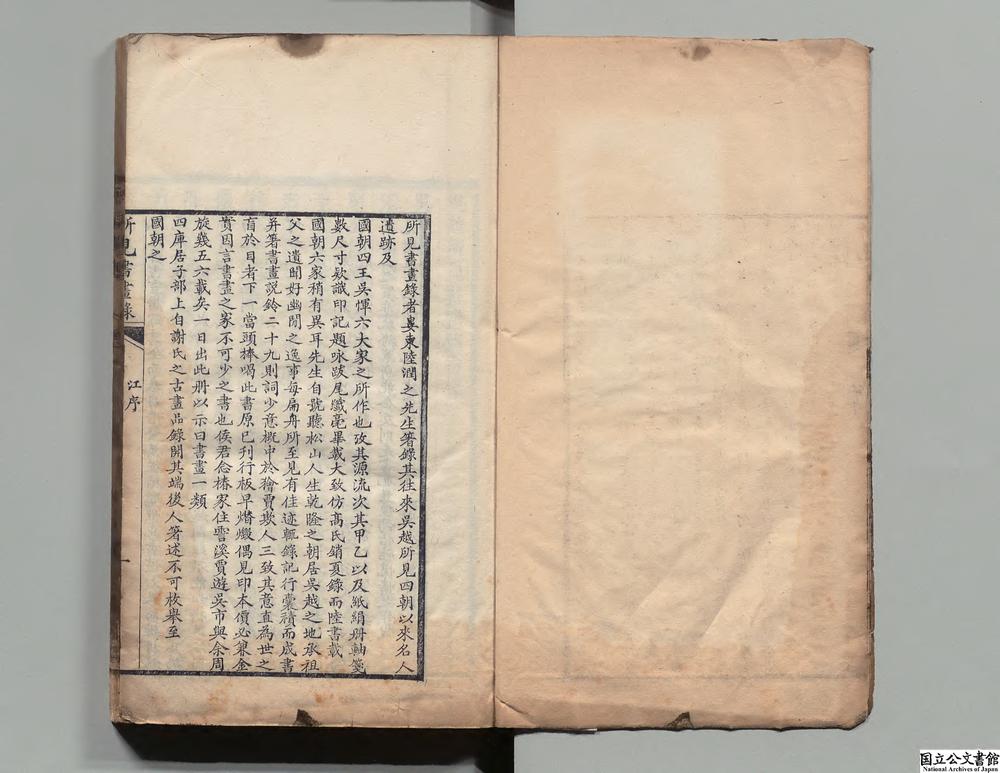 所見書畫錄者婁東陸潤之先生箸錄其往來吳越所見四朝以來名人
遺跡及
國朝四王吳惲六大家之所作也攷其源流次其甲乙以及紙絹册軸箋
數尺寸欵識印記題咏跋尾纖毫畢載大致仿高氏銷夏錄而陸書載
國朝六家稍有異耳先生自號聽松山人生乾隆之朝居吳越之地承祖
父之遺聞好幽閒之逸事每扁舟所至見有佳迹輒錄記行囊積而成書
并箸書畫說鈴二十九則詞少意概中於獪賈欺人三致其意直為世之
盲於目者下一當頭棒喝此書原已刊行板早燬偶見印本價必兼金
實因言書畫之家不可少之書也侯君念椿家住霅溪賈遊吳市與余周
旋幾五六載矣一日出此册以示曰書畫一類
四庫居子部上自謝氏之古畫品錄開其端後人箸述不可枚舉至
國朝之
所見書畫錄
江序
一
国立公文書館
National Archives of Japan